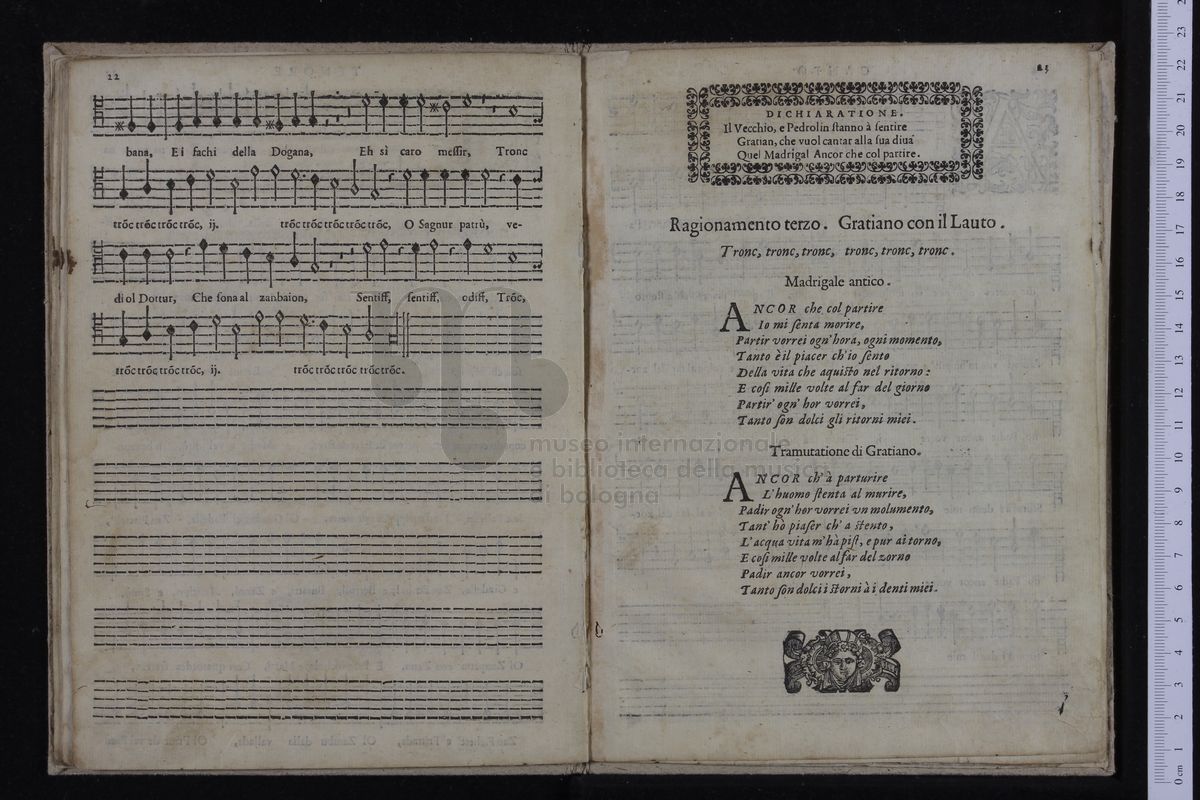 22
bana, E i fachi della Dogana, Eh sì caro messir, Tronc
trõc trõc trõc trõc, ij. trõc trõc trõc trõc trõc, O Sagnur patrù, ve-
di ol Dottur, Che sona al zanbaion, Sentiss, sentiss, odiss, Trõc,
trõc trõc trõc trõc, ij. trõc trõc trõc trõc trõc.
23
DICHIARATIONE.
Il Vecchio, e Pedrolin ſtanno à ſentire
Gratian, che vuol cantar alla ſua diua
Quel Madrigal Ancor che col partire.
Ragionamento terzo. Gratiano con il Lauto.
Tronc, tronc, tronc, tronc, tronc, tronc.
Madrigale antico.
ANCOR che col partire
Io mi ſenta morire,
Partir vorrei ogn'hora, ogni momento,
Tanto è il piacer ch'io ſento
Della vita che aquiſto nel ritorno:
E coſi mille volte al far del giorno
Partir' ogn' hor vorrei,
Tanto ſon dolci gli ritorni miei.
Tramutatione di Gratiano.
ANCOR ch'à parturire
L'huomo ſtenta al murire,
Padir ogn'hor vorrei vn molumento,
Tant' hò piaſer ch' a ſtento,
L'acqua vita m'hà piſt, e pur ai torno,
E coſi mille volte al far del zorno
Padir ancor vorrei,
Tanto ſon dolci i ſtorni à i denti miei.
museo internazionale
e biblioteca della musica
di bologna